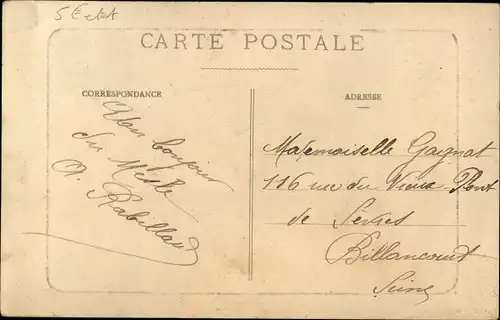 CARTE POSTALE
CORRESPONDANCE
bonjour
du Mesle
A. Rabilland
ADRESSE
Mademoiselle Gagnat
116 rue du Vieux Pont
de Sevres
Billancourt
Seine